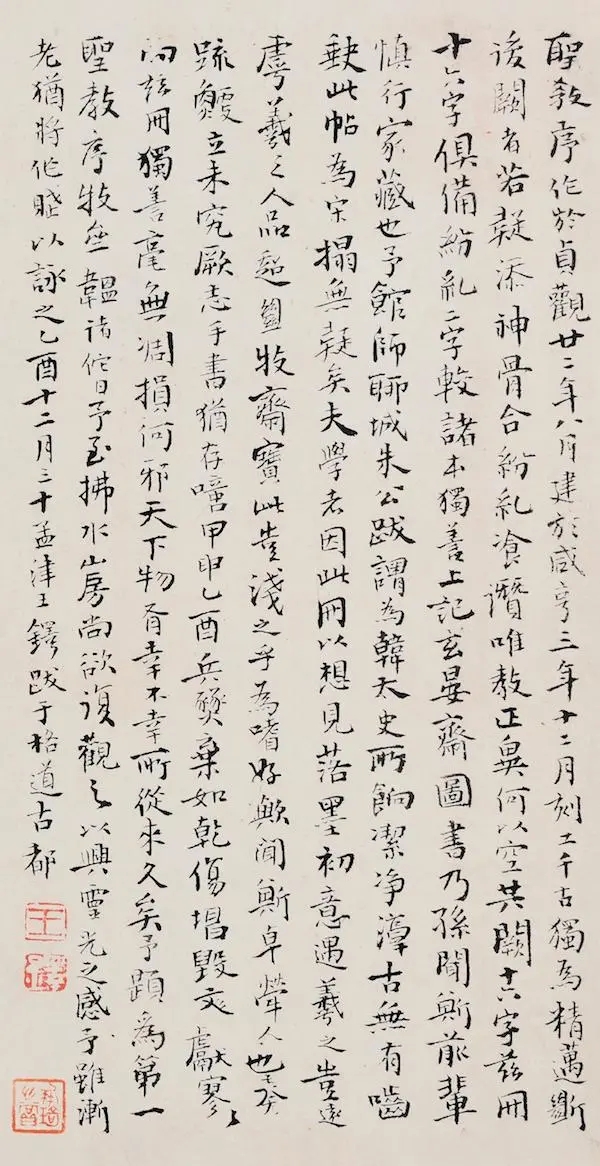 聖教序作於貞觀廿二年八月建於咸亨三年十二月刻工千古獨為精邁斷
後闕者若疑添神骨合紛糺飡潛唯教正與何以空其闕十六字茲冊
十六字俱備紛糺二字較諸本獨善上記玄晏齋圖書乃孫聞斯前輩
慎行家藏也予館師聊城朱公跋謂為韓太史所餉潔淨渟古無有嚙
缺此帖為宋搨無疑矣夫學者因此冊以想見落墨初意遇羲之豈遠
虖羲之人品超 牧齋寶此豈淺之乎為嗜好歟聞斯卓犖人也
疏 立未究厥志手書猶存噫甲申乙酉兵燹棄如乾傷塌毀文獻寥〻
茲冊獨善毫無凋損何邪天下物有幸不幸所從來久矣予題為第一
聖教序牧 韞諸佗日予至拂水山房尚欲復觀之以興靈光之感予雖漸
老猶將作賦以詠之乙酉十二月三十孟津王鐸跋于格道古都
王鐸